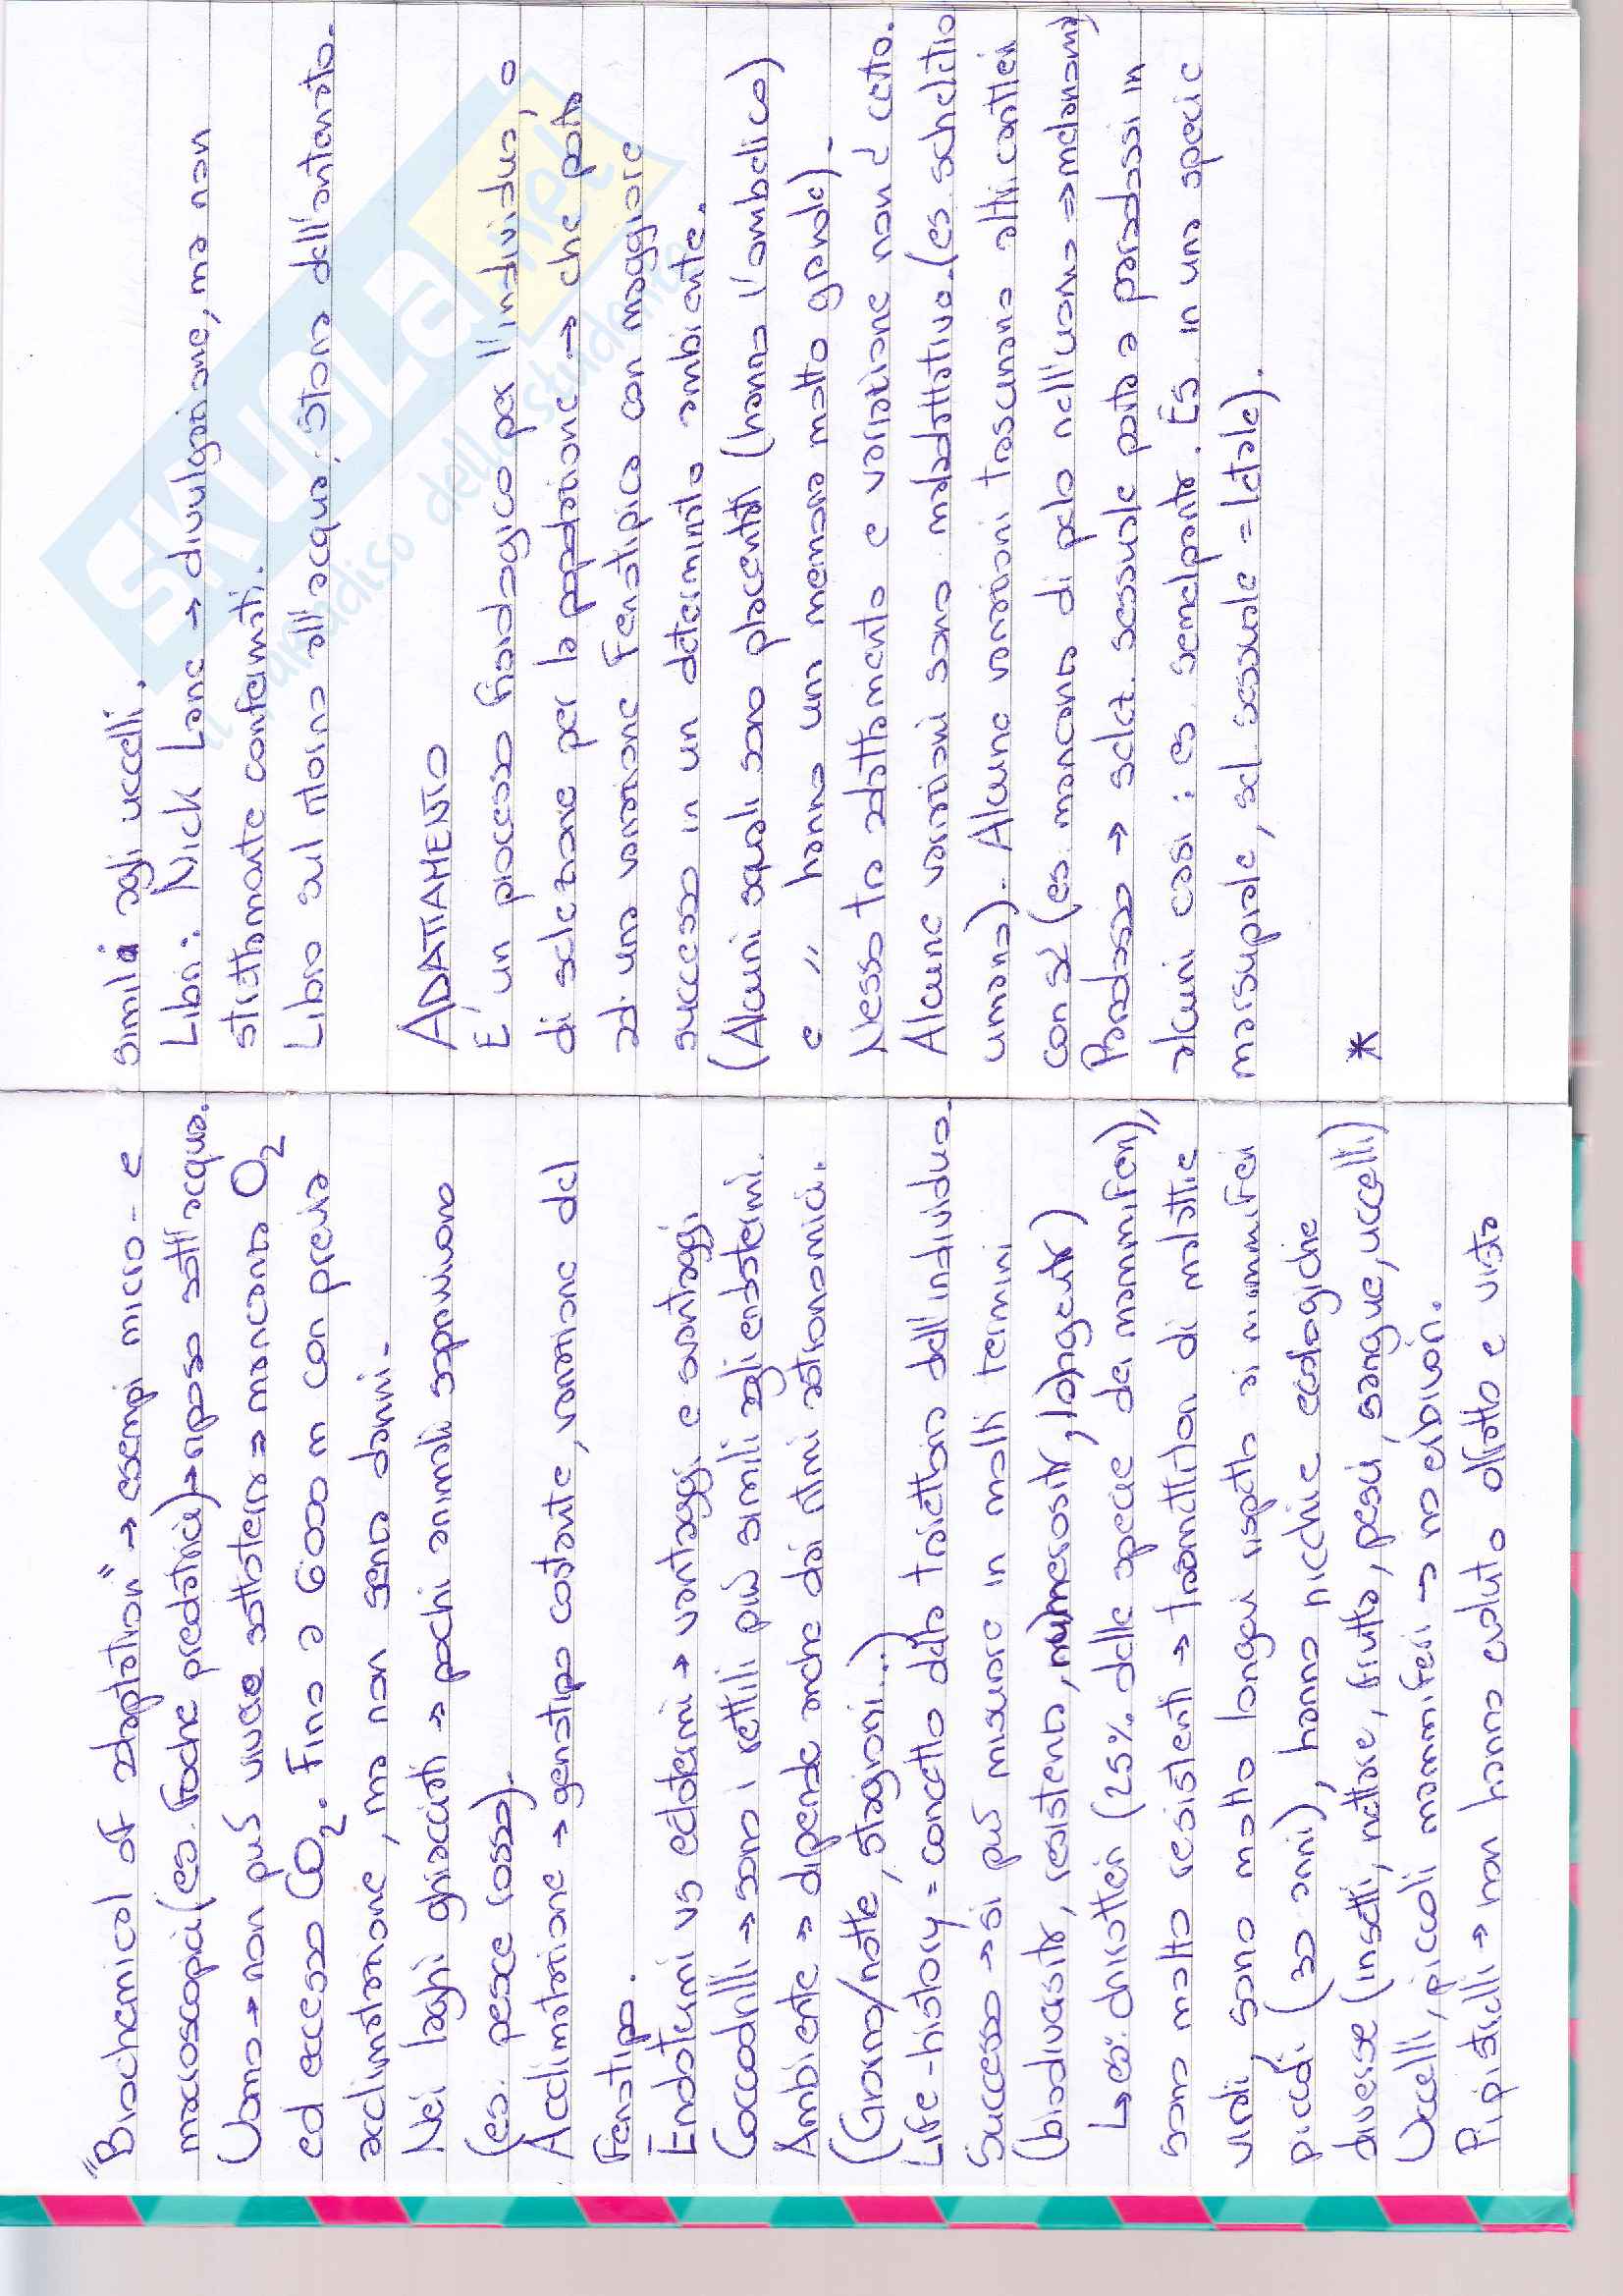 "Biochemical of adaptation" → esempi micro- e
macroscopici (es. foche predatrici) → riposo sott'acqua.
Uomo → non può vivere sottoterra ⇒ mancanza O2
ed eccesso CO2. Fino a 6000 m con previa
acclimatazione, ma non senza danni.
Nei laghi ghiacciati → pochi animali sopravvivono
(es. pesce rosso).
Acclimatazione → genotipo costante, variazione del
fenotipo.
Endotermi vs ectotermi → vantaggi e svantaggi.
Coccodrilli → sono i rettili più simili agli endotermi.
Ambiente ⇒ dipende anche dai ritmi astronomici.
(Giorno/notte, stagioni...)
Life-history = concetto della traiettoria dell'individuo.
Successo → si può misurare in molti termini
(biodiversità, resistenza, numerosità, longevità)
↳ es: chirotteri (25% delle specie dei mammiferi),
sono molto resistenti → trasmettitori di malattie
virali, sono molto longevi rispetto ai mammiferi
piccoli (30 anni), hanno nicchie ecologiche
diverse (insetti, nettare, frutta, pesci, sangue, uccelli)
Uccelli, piccoli mammiferi → no erbivori.
Pipistrelli → non hanno evoluto olfatto e vista
simili agli uccelli.
Libri: Nick Lane → divulgazione, ma non
strettamente confermati.
Libro sul ritorno all'acqua; storia dell'antenato.
ADATTAMENTO
È un processo fisiologico per l'individuo, o
di selezione per la popolazione → che porta
ad una variazione fenotipica con maggiore
successo in un determinato ambiente.
(Alcuni squali sono placentati (hanno l'ombelico)
e " hanno una memoria molto grande).
Nesso tra adattamento e variazione non è certo.
Alcune variazioni sono maladattative (es scheletro
umano). Alcune variazioni trascinano altri caratteri
con sé (es. mancanza di pelo nell'uomo ⇒ melanomi)
Paradosso → selez. sessuale porta a paradossi in
alcuni casi: es. semelparità. Es in una specie
marsupiale, sel sessuale = letale).
*
SKUOLA.net
il paradiso dello studente